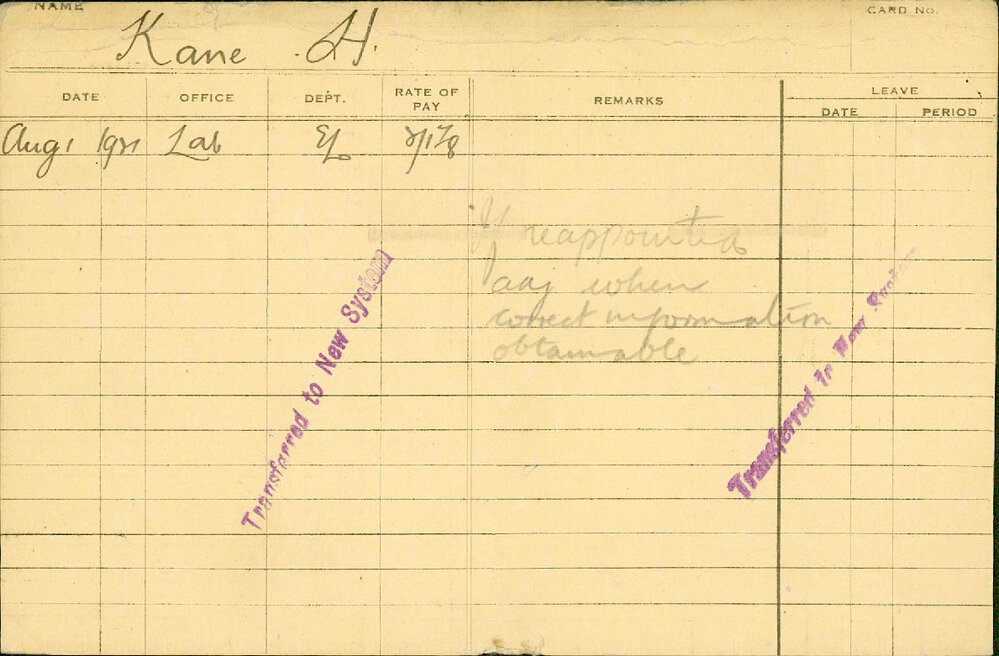 NAME
CARD NO.
Kane H.
DATE OFFICE DEPT. RATE OF PAY REMARKS LEAVE
DATE PERIOD
Aug 1 1921 Lab EL
If reappointed
adj when
correct information
obtainable
Transferred to New System
Transferred to New System